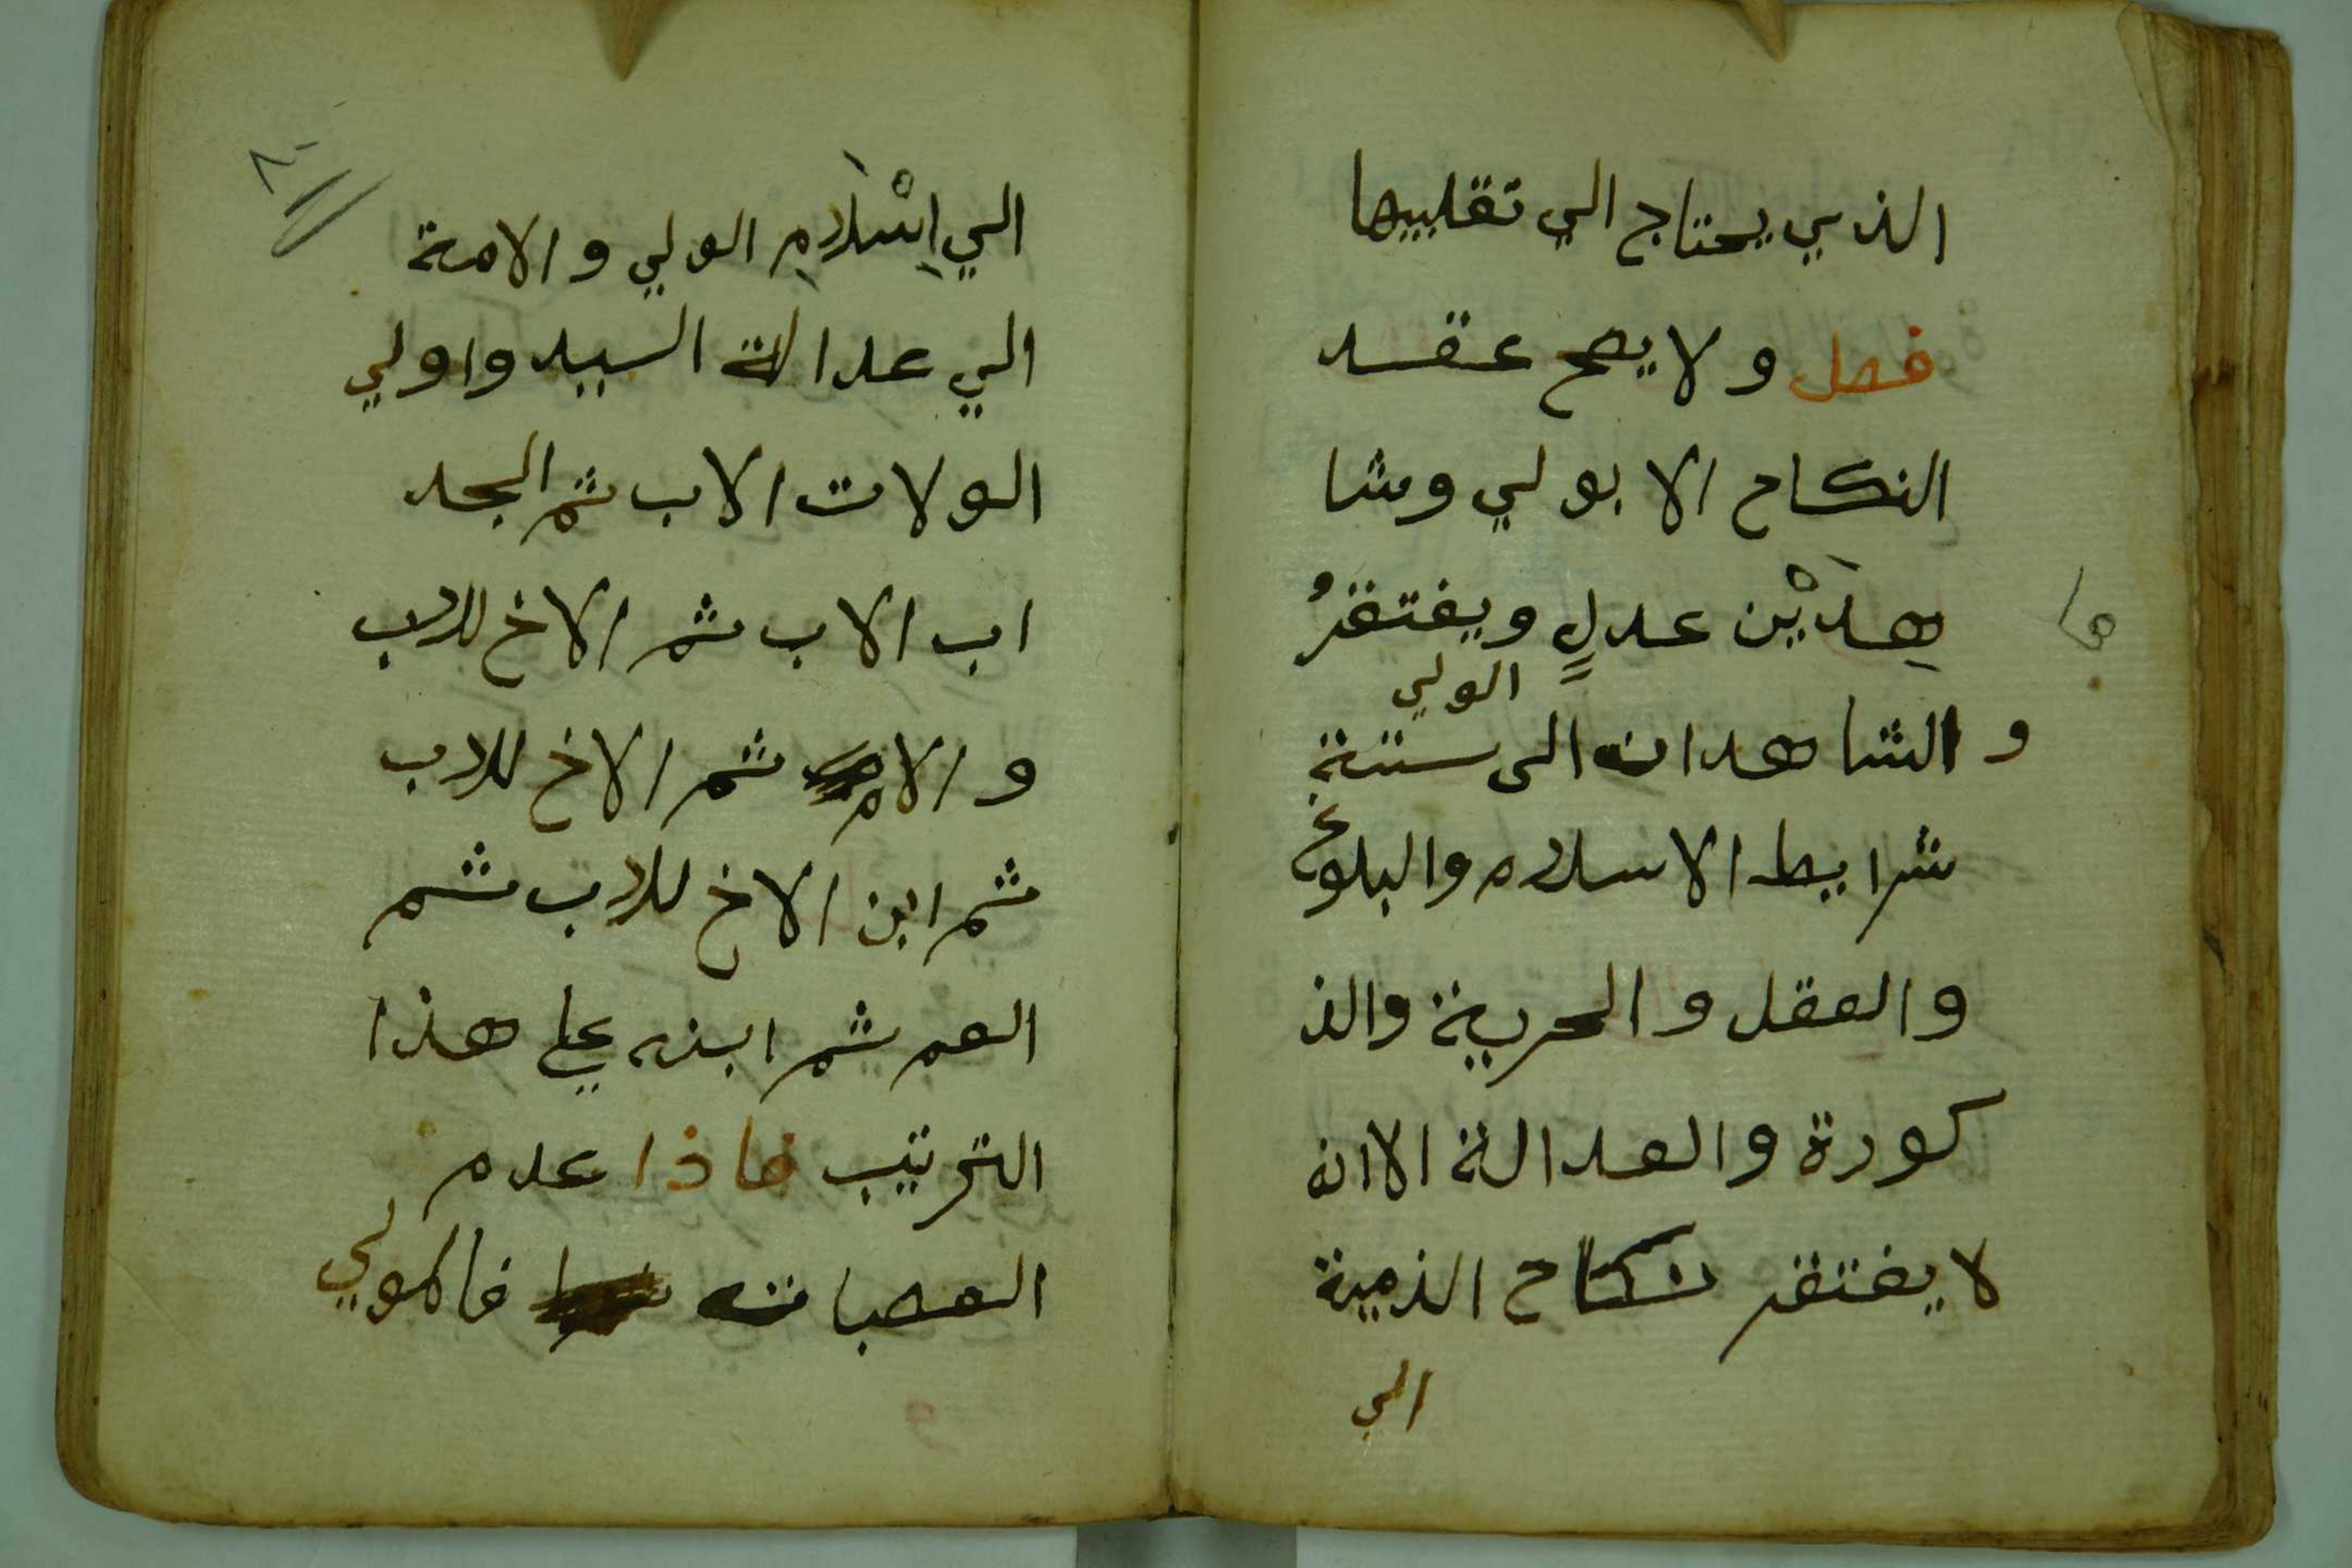 الذي يحتاج الي تقليبها
فصل ولا يصح عقد
النكاح الا بولي وشا
هِدَيْن عدلٍ ويفتقرُ
الولي
و الشاهدان الى ستتة
شرايط الاسلام والبلوغ
والعقل والحرية والذ
كورة والعدالة الا انه
لا يفتقر نكاح الذمية
الي
٨٠
الي اِسْلَامِ الولي والامة
الي عدالة السيد واولي
الولات الاب ثم الجد
اب الاب ثم الاخ للاب
والام ثم الاخ للاب
ثم ابن الاخ للاب ثم
العم ثم ابنه علي هذا
الترتيب فاذا عدم
العصبات فالمولي